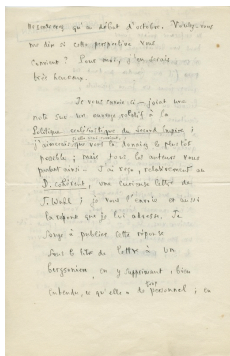 qu'au début d'octobre. Voudriez-vous
me dire si cette perspective vous
convient ? Pour moi, j'en serais
très heureux.
Je vous envoie ci-joint une
note sur un ouvrage relatif à la
Politique du Second Empire ;
j'aimerais que vous la donniez le plus tôt
possible ; mais tous les auteurs vous
J'ai reçu, relativement au
une curieuse lettre de
; je vous l'envoie et aussi
la réponse que je lui adresse. Je
songe à publier cette réponse
sous le titre de Lettre à un
bergsonien, en y supprimant, bien
entendu, ce qu'elle a de personnel ; en